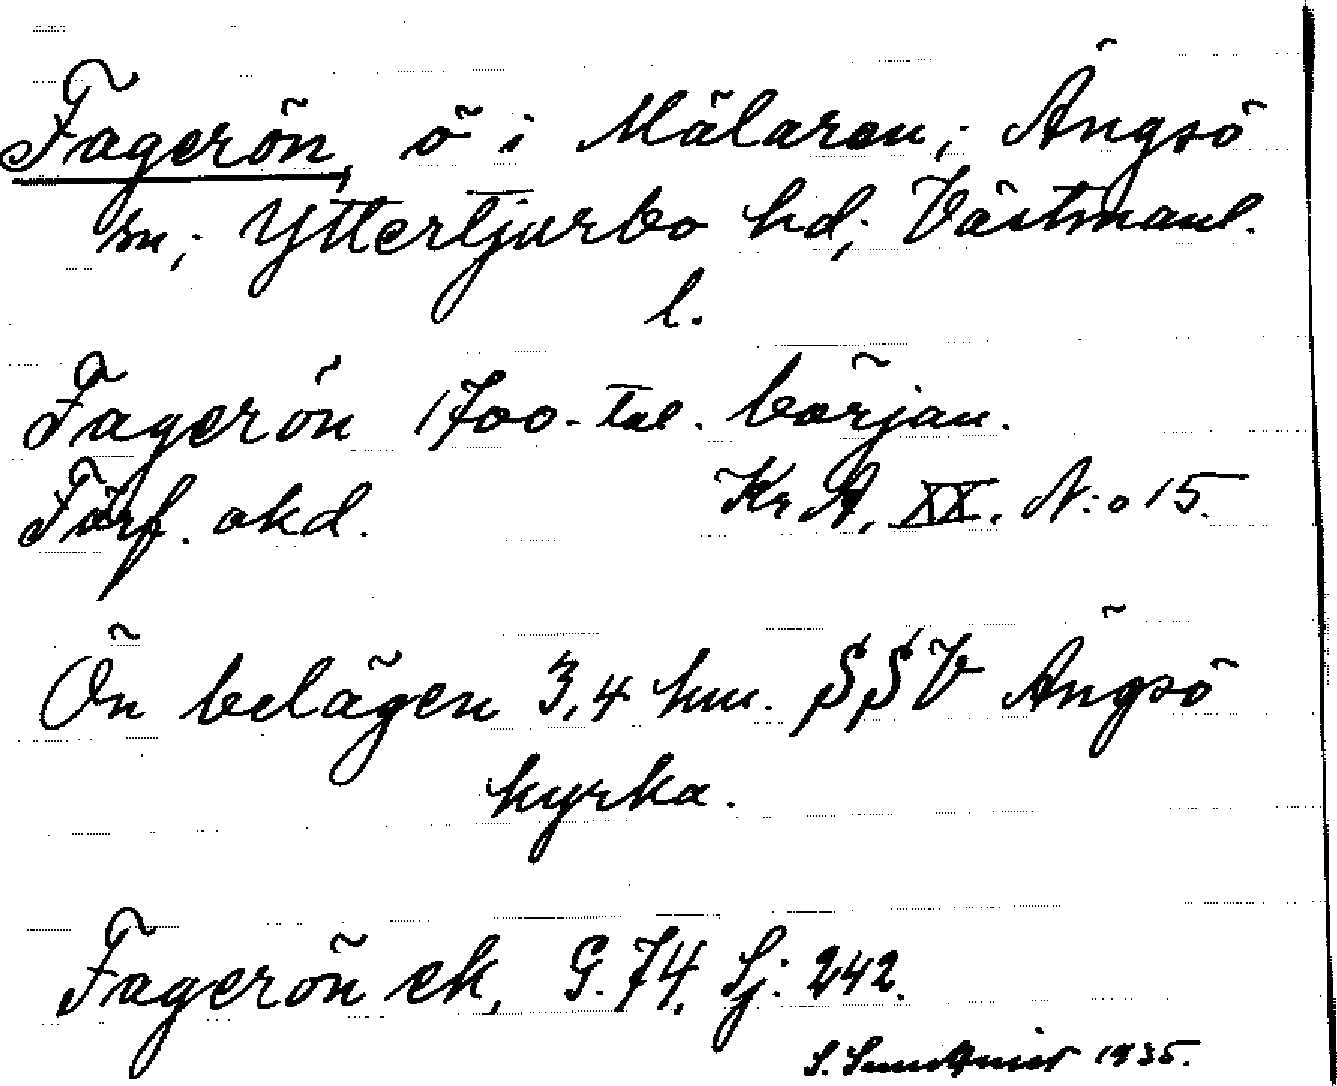 Fagerön, ö i Mälaren; Ängsö
sn; Yttertjurbo hd; Västmanl.
l.
Fagerön 1700-tal. början.
Förf. okd. Kr. A. XX. N:o 15.
Ön belägen 3,4 km. SSV Ängsö
kyrka.
Fagerön ek, G. 74. Sj: 242.
S. 1935.